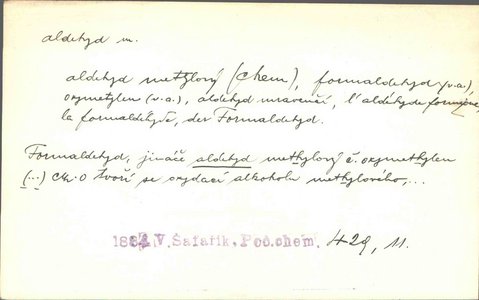 aldehyd m.
aldehyd methylový (chem), formaldehyd (v.a.),
oxymetylen (v.a.), aldehyd mravenčí, l'aldéhyde formique,
la formaldehyde, der Formaldehyd.
Formaldehyd, jináče aldehyd methylový č. oxymethylen
(...) CH2O tvoří se oxydací alkoholu methylového,...
V. Šafařík, Poč.chem. 429, 11.